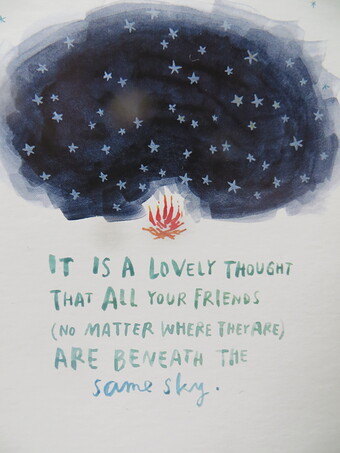 IT IS A LOVELY THOUGHT
THAT ALL YOUR FRIENDS
(NO MATTER WHERE THEY ARE)
ARE BENEATH THE
same sky.